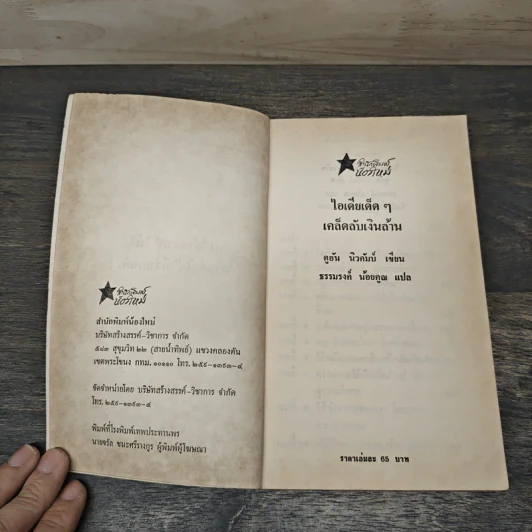 สำนักพิมพ์น้องใหม่
บริษัทสร้างสรรค์-วิชาการ จำกัด
๕๘๓ สุขุมวิท ๒๒ (สายน้ำทิพย์) แขวงคลองตัน
เขตพระโขนง กทม. ๑๐๑๑๐ โทร. ๒๕๙-๑๓๙๓-๔
จัดจำหน่ายโดย บริษัทสร้างสรรค์-วิชาการ จำกัด
โทร. ๒๕๙-๑๓๙๓-๔
พิมพ์ที่โรงพิมพ์เทพประทานพร
นายจรัล ชนะศรีรางกูร ผู้พิมพ์ผู้โฆษณา
สำนักพิมพ์
น้องใหม่
ไอเดียเด็ด ๆ
เคล็ดลับเงินล้าน
ดูอัน นิวคัมบ์ เขียน
ธรรมรงค์ น้อยคูณ แปล
ราคาเล่มละ 65 บาท